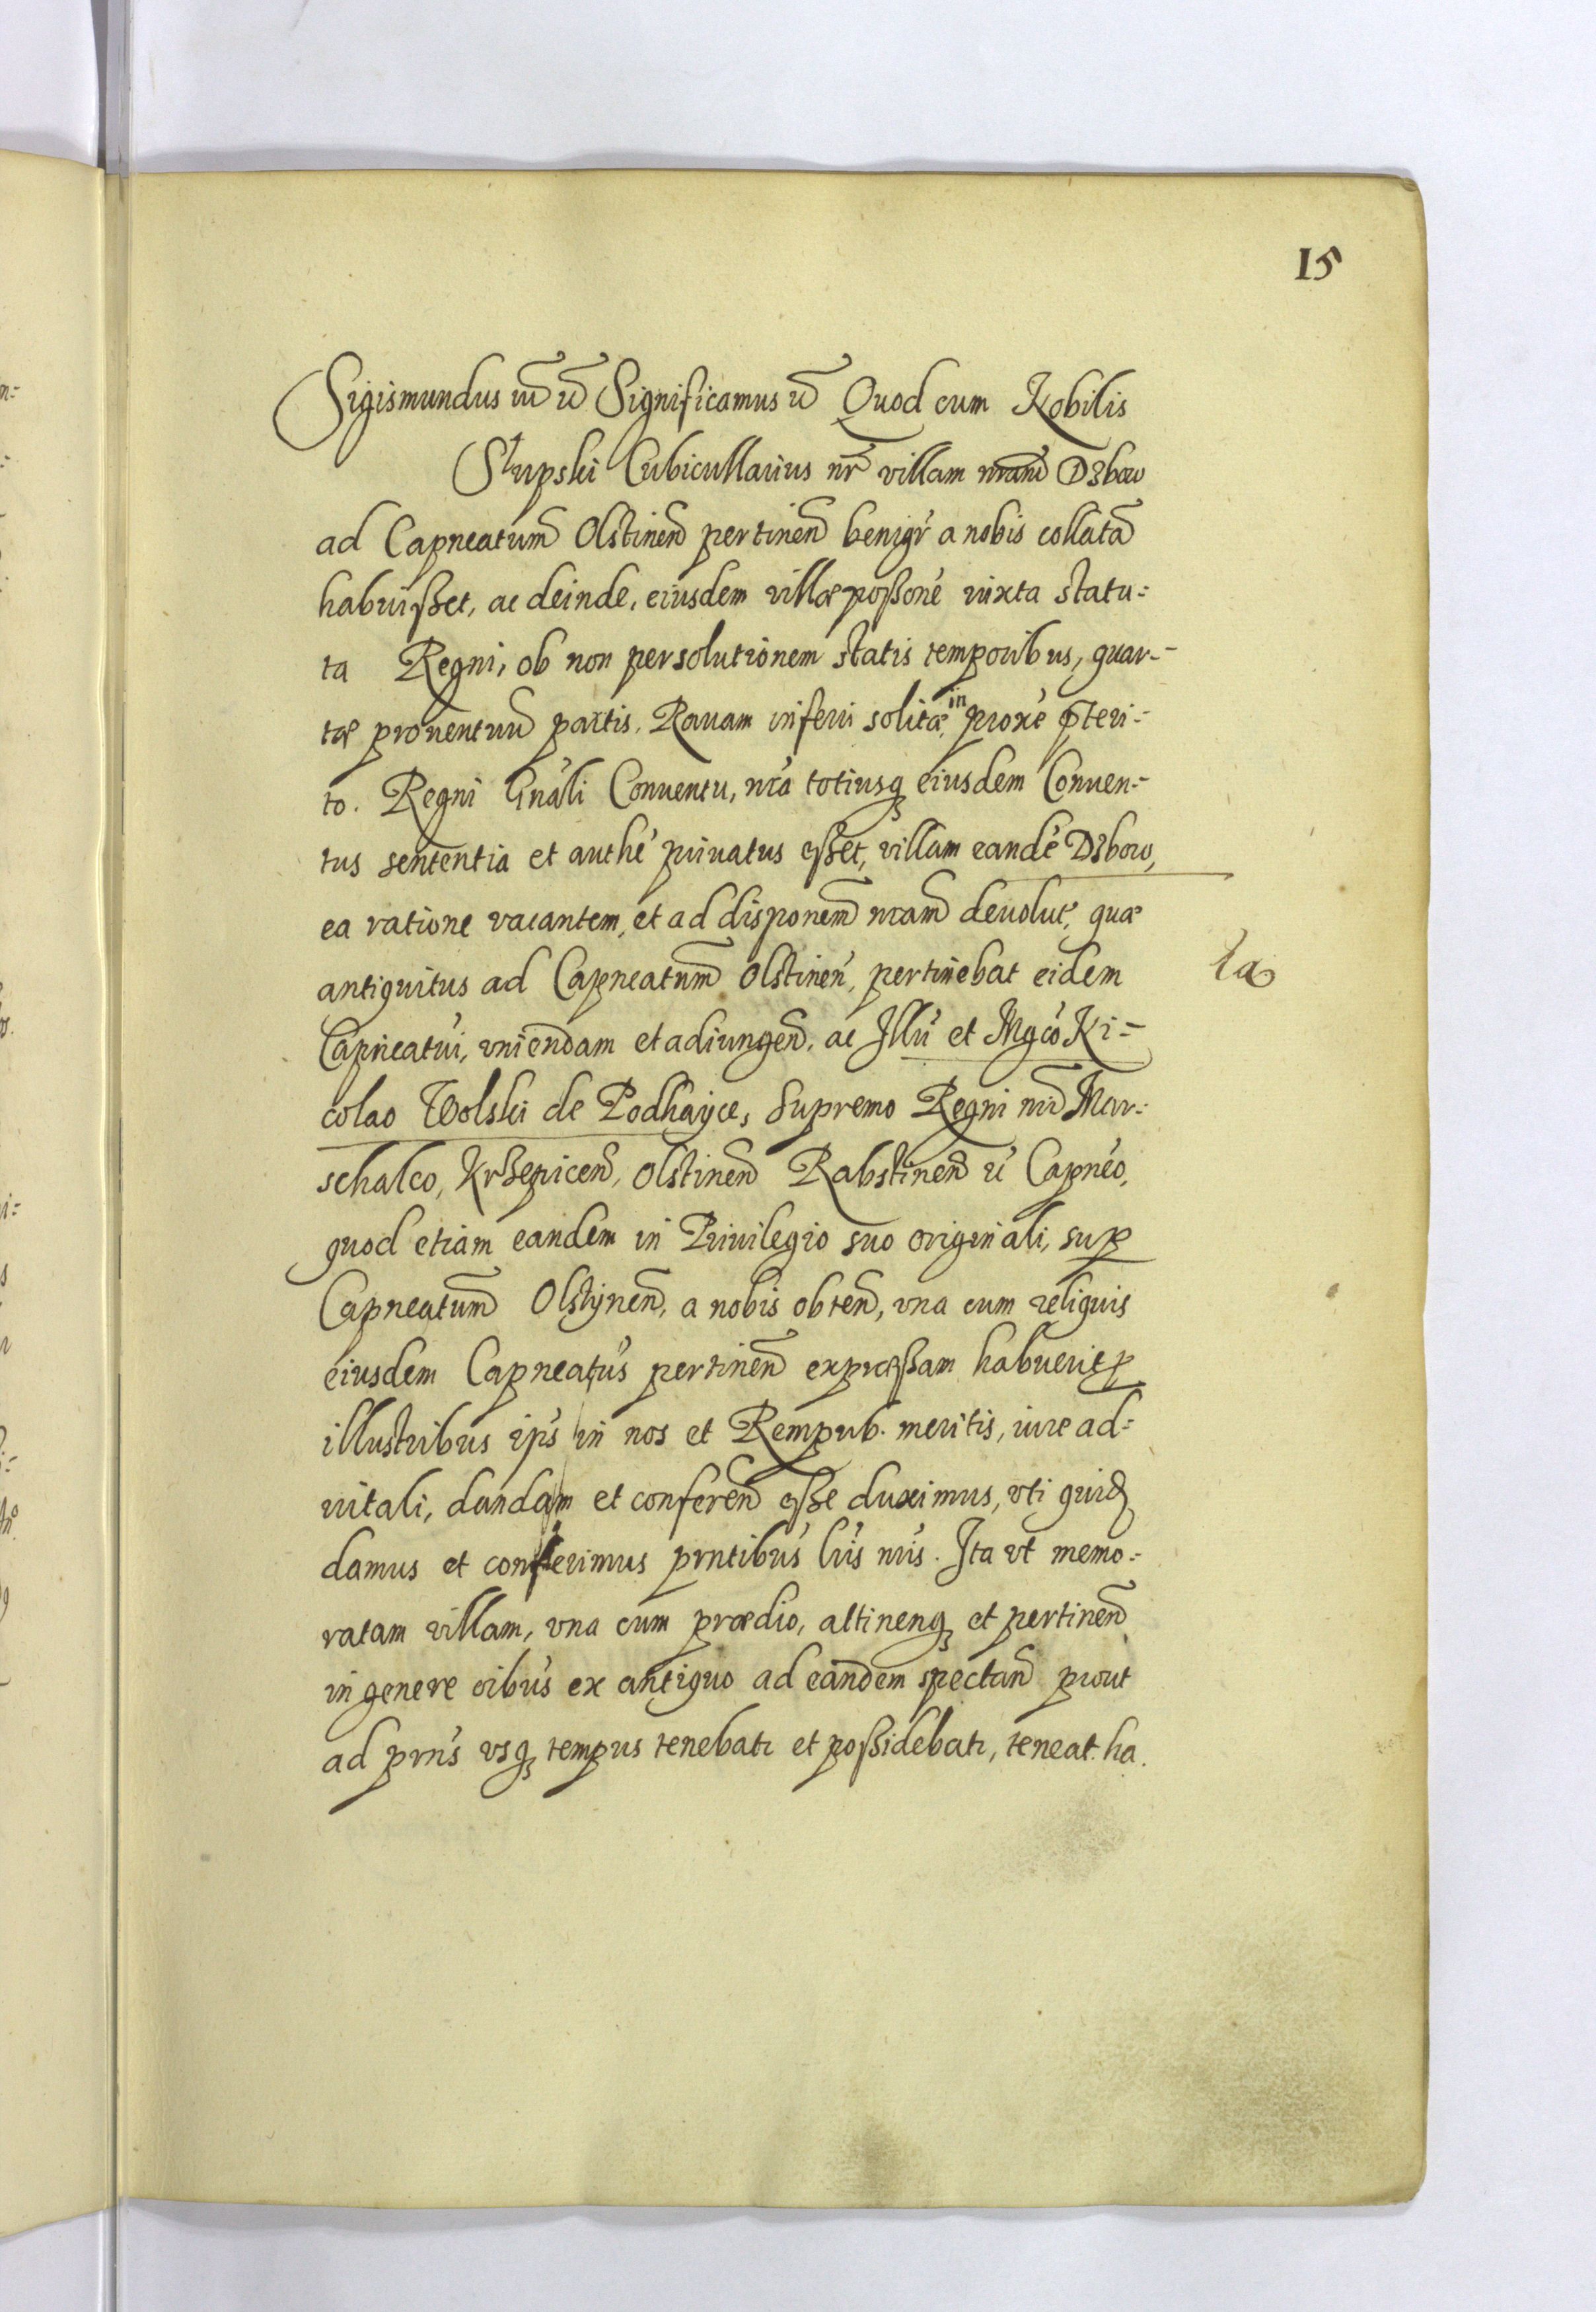 15
Sigismundus iii͠ u͠ Significamus u͠ Quod cum Nobilis
Słupski Cubicullarius nr͠ villam nram͠ Dzbow
ad Capneatum͠ Olstinen͠ pertinen͠ benigr̃ a nobis collata͠
habuisset, ac deinde, eiusdem villæ possone͠ iuxta statu=
ta Regni, ob non persolutionem statis temporibus, quar=
tæ prouentuu͠ partis, Rauam inferri solitæ, in proxe͠ p̄teri=
to. Regni Gna͠li Conuentu, nra͠ totiusq; eiusdem Conuen=
tus sententia et authe͠ priuatus esset, villam eande͠ Dzbow,
ea ratione vacantem, et ad disponem͠ nram͠ deuolut͠, quæ
antiquitus ad Capneatum͠ Olstinen͠, pertinebat eidem
Capneatui͠, vniendam et adiungen͠, ac Illu͠ et Mgco͠ Ni=
colao Wolski de Podhayce, Supremo Regni nri͠ Mar=
schalco, Krzepicen͠, Olstinen͠ Rabstinen͠ u͠ Capneo͠,
quod etiam eandem in Priuilegio suo originali, sup
Capneatum͠ Olstynen͠, a nobis obten͠, vna cum reliquis
eiusdem Capneatus͠ pertinen͠ expressam habuerit, p
illustribus ips͠ in nos et Rempub. meritis, iure ad=
uitali, dandam et conferen͠ esse duximus, vti quid͠
damus et conferimus prntibus͠ lris͠ nris͠. Ita vt memo=
ratam villam, vna cum prædio, attinenq; et pertinen͠
in genere oibus͠ ex antiquo ad eandem spectan͠ prout
ad prns͠ vsq; tempus tenebatr et possidebatr, teneat. ha.